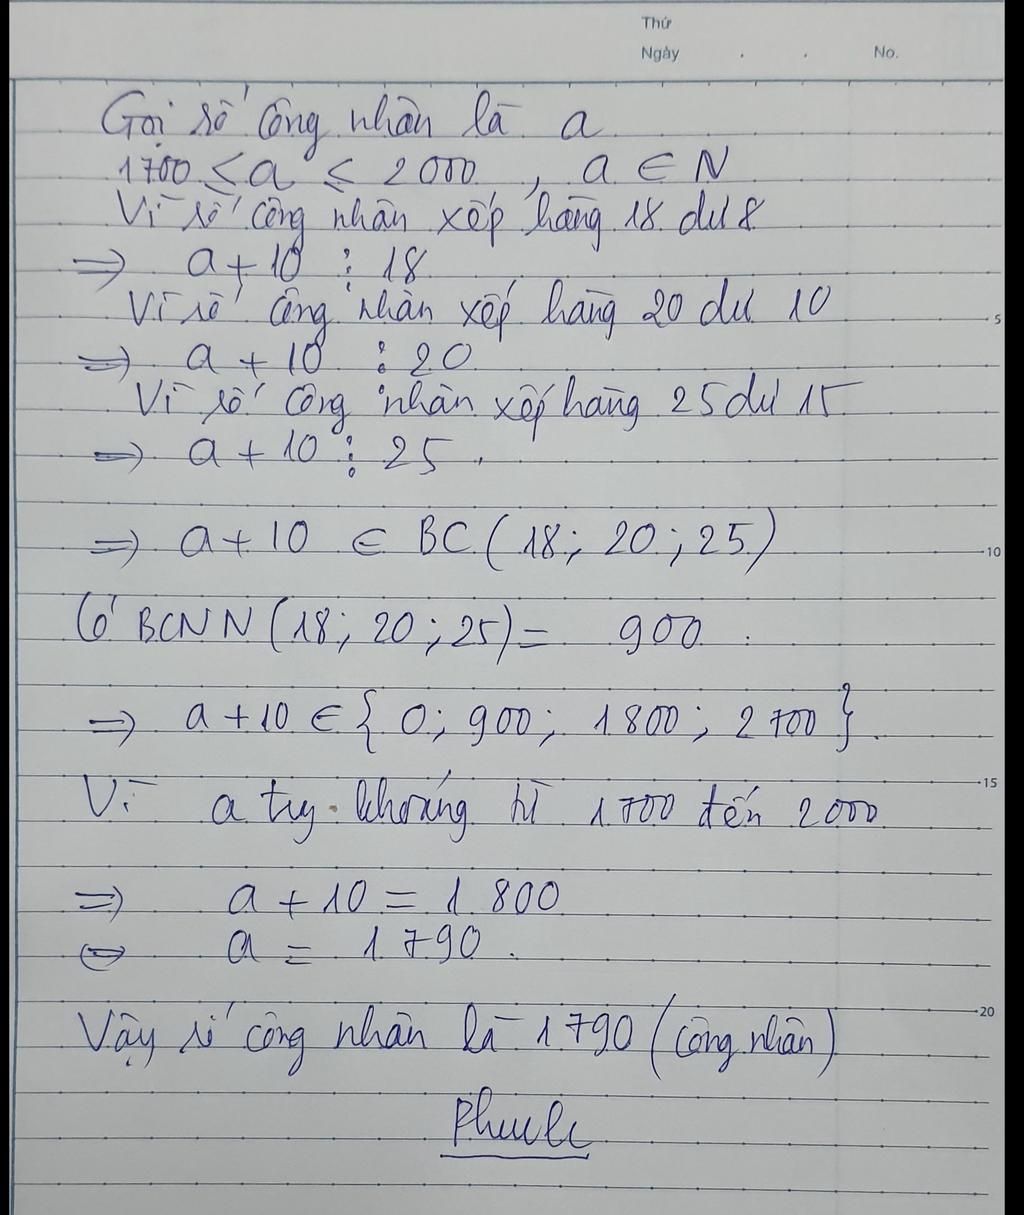 Thứ
Ngày . . No.
Gọi số công nhân là a
1700 ≤ a ≤ 2000 , a ∈ N
Vì số công nhân xếp hàng 18 dư 8
=> a + 10 ⋮ 18
Vì số công nhân xếp hàng 20 dư 10
=> a + 10 ⋮ 20
Vì số công nhân xếp hàng 25 dư 15
=> a + 10 ⋮ 25.
=> a + 10 ∈ BC ( 18 ; 20 ; 25 )
Có BCNN ( 18 ; 20 ; 25 ) = 900.
=> a + 10 ∈ { 0 ; 900 ; 1800 ; 2700 }.
Vì a khoảng từ 1700 đến 2000
=> a + 10 = 1800
<=> a = 1790.
Vậy số công nhân là 1790 ( công nhân )
5
10
15
20